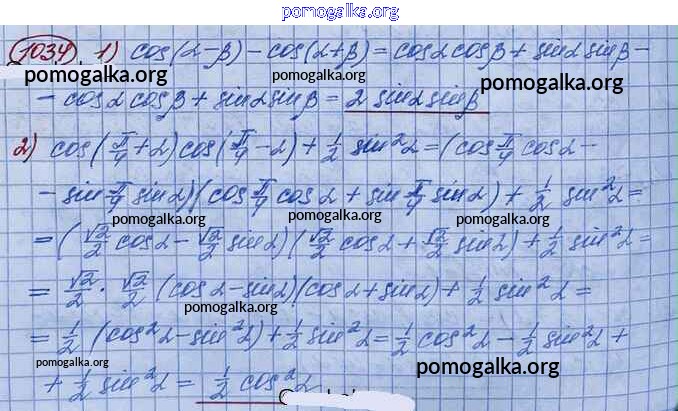 pomogalka.org
1034 1) cos(α-β) - cos(α+β) = cosα cosβ + sinα sinβ -
pomogalka.org pomogalka.org pomogalka.org
- cosα cosβ + sinα sinβ = 2 sinα sinβ
2) cos(π/4 + α) cos(π/4 - α) + 1/2 sin²α = (cos π/4 cosα -
- sin π/4 sinα)(cos π/4 cosα + sin π/4 sinα) + 1/2 sin²α =
pomogalka.org pomogalka.org pomogalka.org
= (√2/2 cosα - √2/2 sinα)(√2/2 cosα + √2/2 sinα) + 1/2 sin²α =
= √2/2 · √2/2 (cosα - sinα)(cosα + sinα) + 1/2 sin²α =
pomogalka.org
= 1/2 (cos²α - sin²α) + 1/2 sin²α = 1/2 cos²α - 1/2 sin²α +
pomogalka.org pomogalka.org
+ 1/2 sin²α = 1/2 cos²α